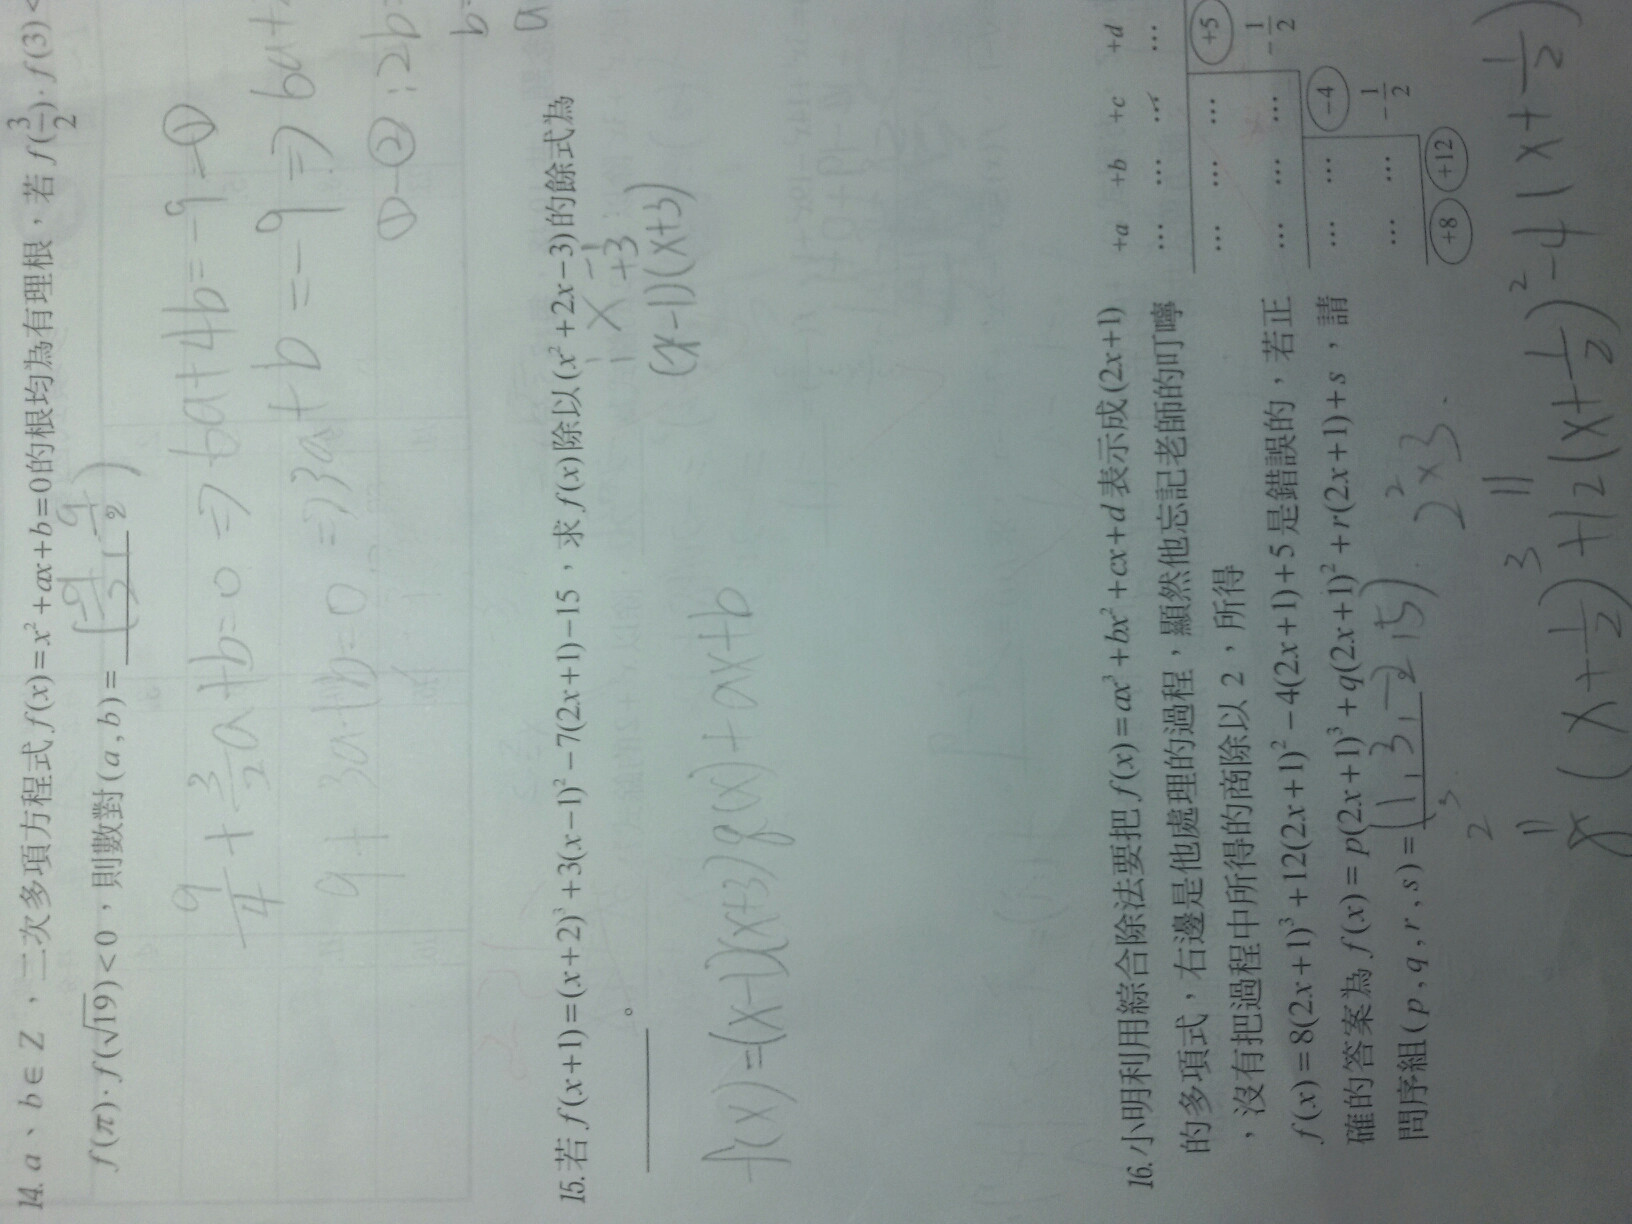 14. a、b∈Z，二次多項方程式 f(x)=x²+ax+b=0的根均為有理根，若 f(3/2)·f(3)<
f(π)·f(√19)<0，則數對(a,b)=
9/4+3/2a+b=0 ⇒ 6a+4b=-9 -①
9+3a+b=0 ⇒3a+b=-9 ⇒ 6a+
①-②:2b=
b=
a
15. 若 f(x+1)=(x+2)³+3(x-1)²-7(2x+1)-15，求 f(x)除以(x²+2x-3)的餘式為
。
1 -1
1 +3
(x-1)(x+3)
f(x)=(x-1)(x+3)q(x)+ax+b
16. 小明利用綜合除法要把 f(x)=ax³+bx²+cx+d 表示成(2x+1)
的多項式，右邊是他處理的過程，顯然他忘記老師的叮嚀
，沒有把過程中所得的商除以 2，所得
f(x)=8(2x+1)³+12(2x+1)²-4(2x+1)+5 是錯誤的，若正
確的答案為 f(x)=p(2x+1)³+q(2x+1)²+r(2x+1)+s，請
問序組(p,q,r,s)=(1,3,-2,5)
+a +b +c +d
… … … …
… … … +5
-1/2
… … …
… … -4
-1/2
… …
+8 +12
2³ 2²×3
8(x+1/2)³+12(x+1/2)²-4(x+1/2)